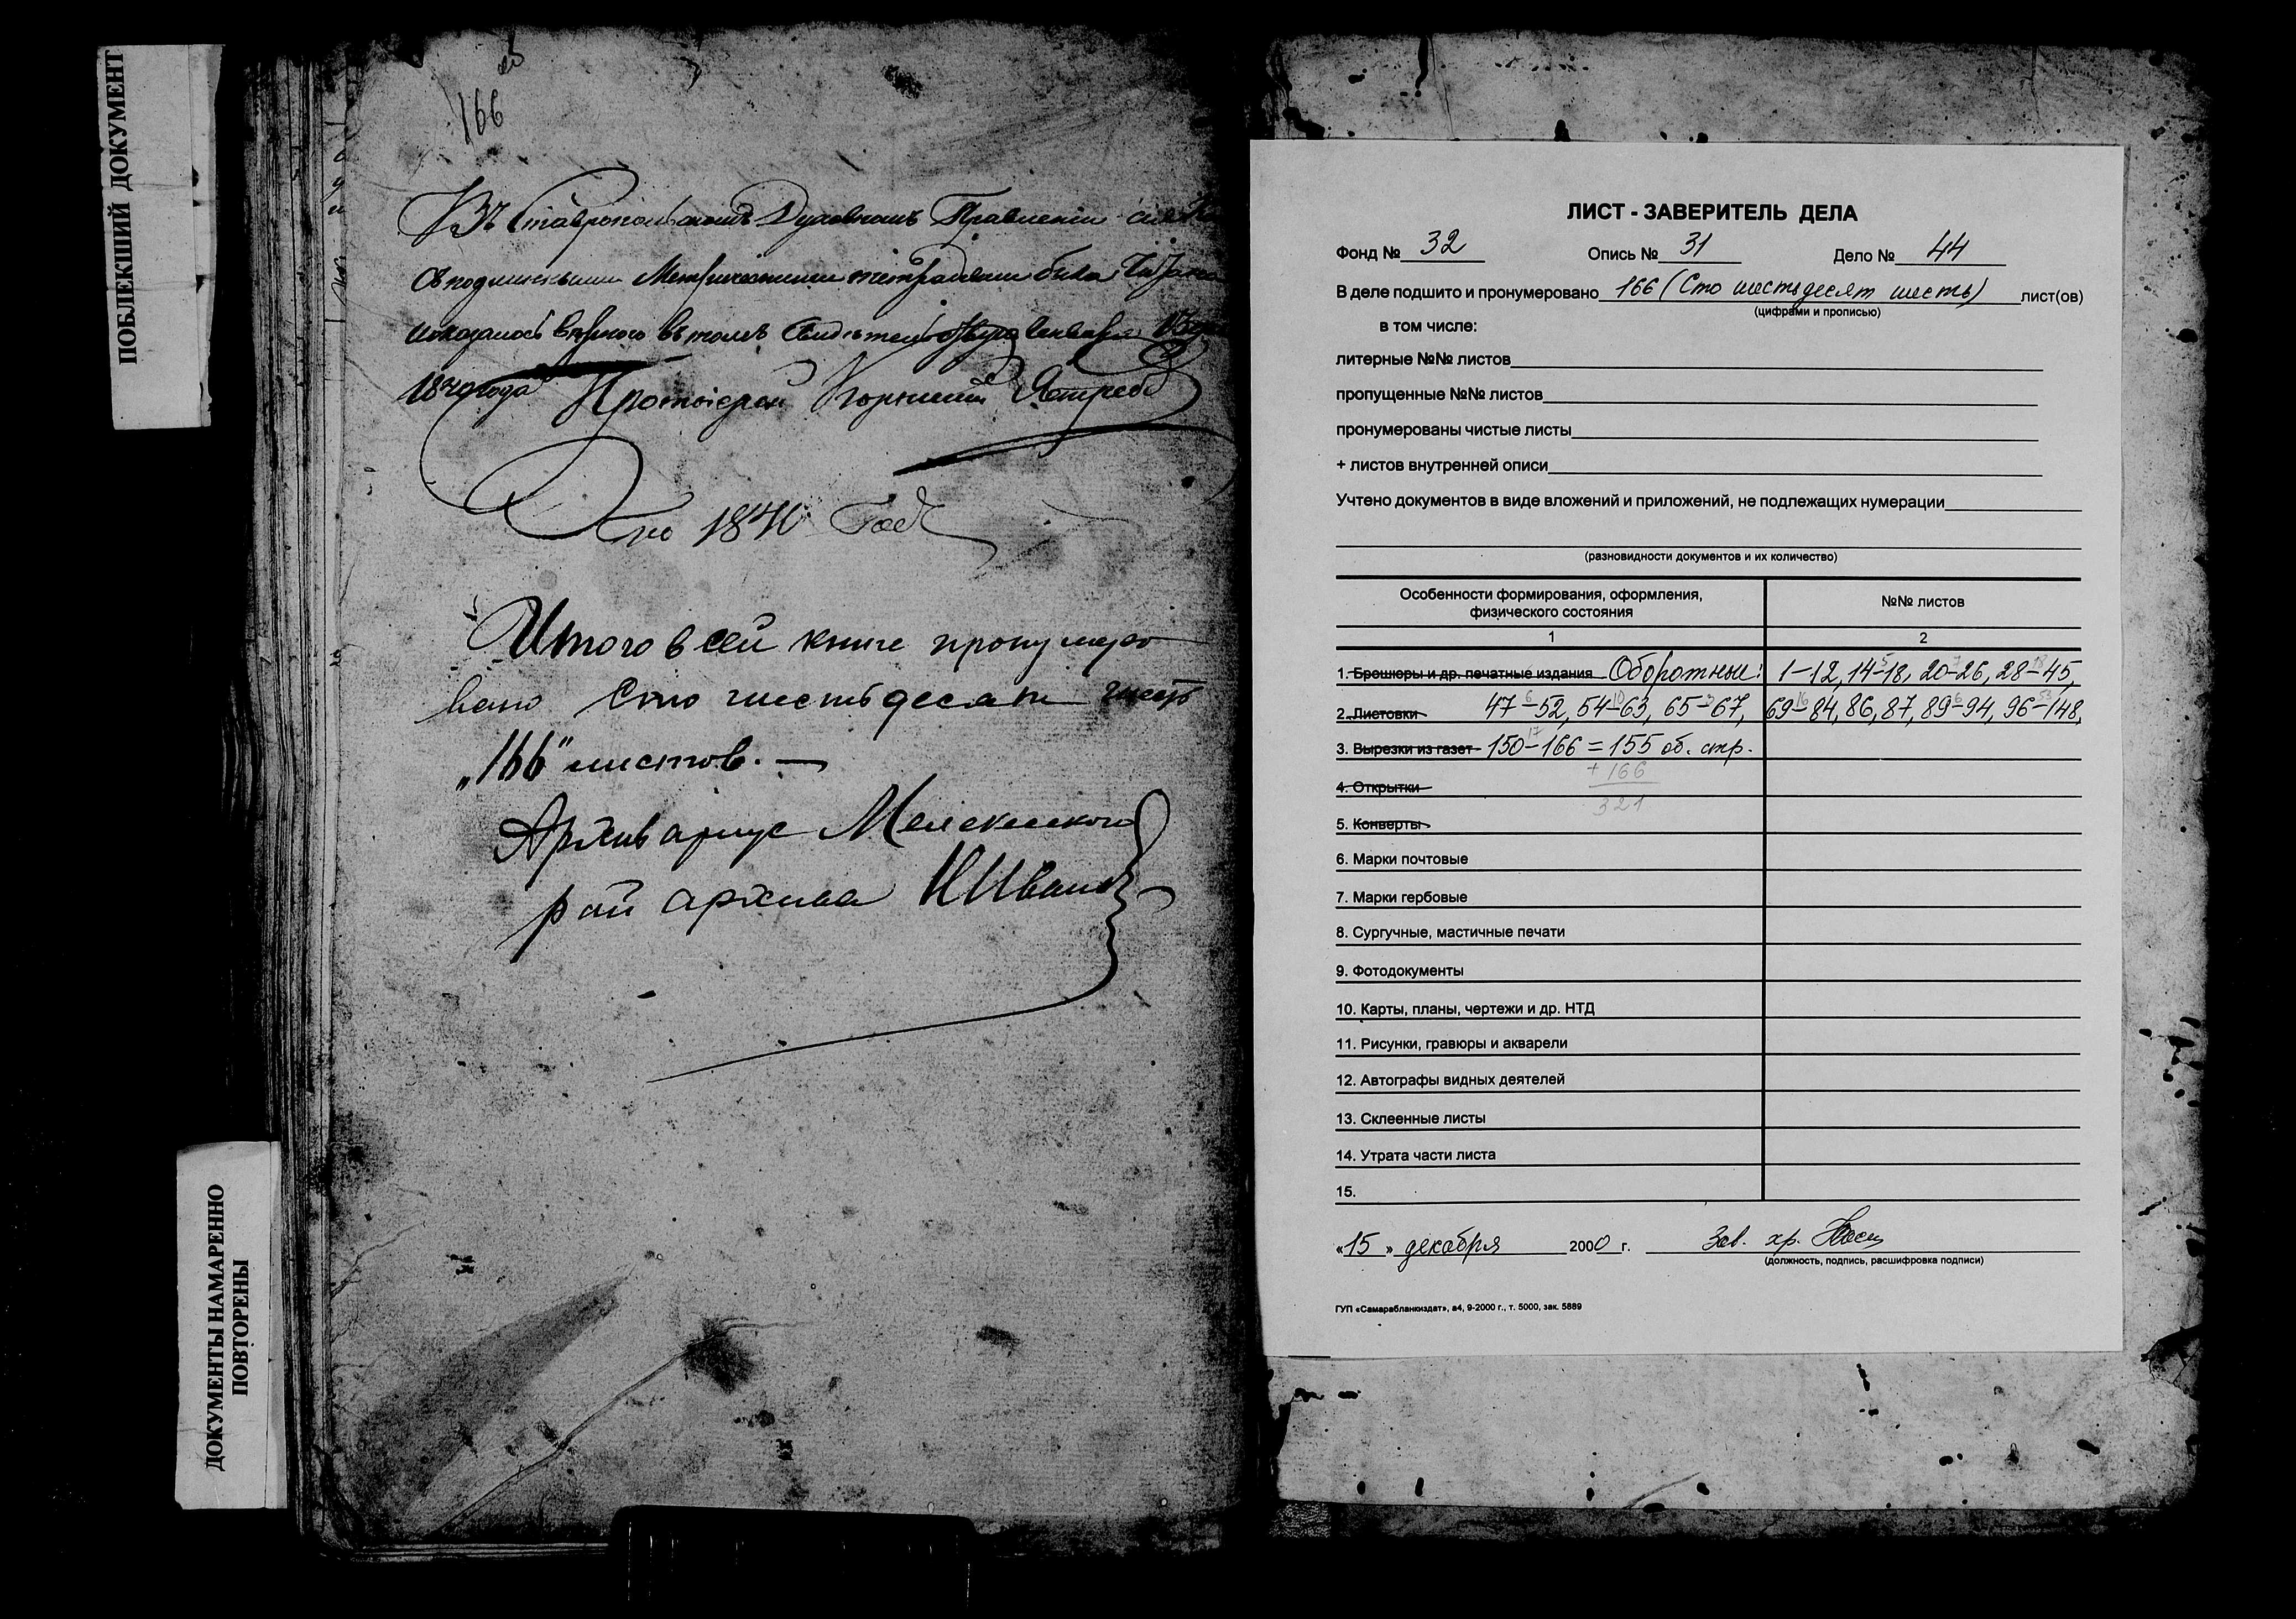 ПОБЛЕКШИЙ ДОКУМЕНТ
ДОКУМЕНТЫ НАМАРЕННО
ПОВТОРЕНЫ
166
Въ Ставропольскомъ Духовномъ Правлении сия
с подлинными Метрическими тетрадями была
оказалось верного в томъ
1840 года Протоиерей Корнилий Ястребо
по 1840 Год
Итого в сей книге пронумеро
вано Сто шестьдесят шесть
„166" листов. —
Архивариус Мелекесского
рай архива Н Иванов
ЛИСТ - ЗАВЕРИТЕЛЬ ДЕЛА
Фонд № 32 Опись № 31 Дело № 44
В деле подшито и пронумеровано 166 (Сто шестьдесят шесть) лист(ов)
(цифрами и прописью)
в том числе:
литерные №№ листов
пропущенные №№ листов
пронумерованы чистые листы
+ листов внутренней описи
Учтено документов в виде вложений и приложений, не подлежащих нумерации
(разновидности документов и их количество)
Особенности формирования, оформления, №№ листов
физического состояния
1 2
1. Брошюры и др. печатные издания Оборотные: 1-12, 14-18, 20-26, 28-45,
2. Листовки 47-52, 54-63, 65-67, 69-84, 86, 87, 89-94, 96-148,
3. Вырезки из газет 150-166 = 155 об. стр.
+ 166
4. Открытки
321
5. Конверты
6. Марки почтовые
7. Марки гербовые
8. Сургучные, мастичные печати
9. Фотодокументы
10. Карты, планы, чертежи и др. НТД
11. Рисунки, гравюры и акварели
12. Автографы видных деятелей
13. Склеенные листы
14. Утрата части листа
15.
«15» декабря 2000 г. Зав. хр.
(должность, подпись, расшифровка подписи)
ГУП «Самарабланкиздат», а4, 9-2000 г., т. 5000, зак. 5889